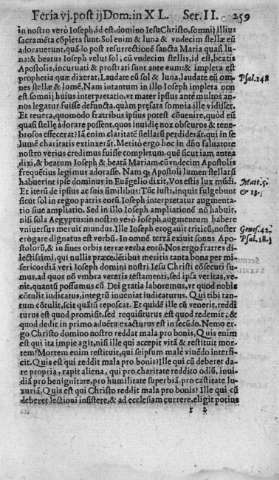 Feria vj. post ij Dom. in XL. Ser. II. 259
in nostro vero Ioseph, id est, domino Iesu Christo, somnij illius
sacramēta cōpleta sunt. Sol enim & luna & vndecim stellæ eū
adorauerunt, quādo post resurrectionē sancta Maria quasi lu-
na: & beatus Ioseph velut sol, cū vndecim stellis, id est, beatis
Apostolis, incuruati & prostrati sunt ante eum: & impleta est
prophetia quæ dixerat, Laudate eū sol & luna, laudate eū om- Psal. 148
nes stellæ & lumē. Nam intantum in illo Ioseph impleta non
est somnij huius interpretatio, vt mater ipsius ante multos an-
nos defuncta legatur, quàm præsens somnia ille vidisset.
Et reuera, quomodo fratribus ipsius potest cōuenire, quòd ei
quasi stellæ visi sunt, quos inuidiæ nox obscuros & tene-
brosos effecerat? Iā enim claritatē stellarū perdiderāt, qui in se
charitatis extinxerāt. Meritò ergo hoc in dño saluatore
nostro verius credimus fuisse completum: qui sicut iam antea
dixi, à beato Ioseph & beata Maria cū vndecim Apostolis
frequētius legimus adorasse. Nam q; Apostoli lumen stellarū
habuerint ipse dominus in Euāgelio dicit, Vos estis lux mūdi. Matt. 5.
Et iterū de ipsis ac suis similibus: Tūc iusti, inquit fulgebunt & 13.
sicut sol in regno patris eorū. Ioseph interpretatur augmenta-
tio siue ampliatio. Sed in illo Ioseph ampliationē nō habuit,
nisi sola Aegyptus: in nostro vero Ioseph augmentum habere
vniuersus meruit mundus. Ille Ioseph erogauit triticū, noster Genes. 42.
erogare dignatus est verbū. In omnē terrā exiuit sonus Apo- Psal. 18.
stolorū, & in fines orbis terræ verba eorū. Nos ergo fratres di-
lectissimi, qui nullis præcedētibus meritis tanta bona per mi-
sericordiā veri Ioseph domini nostri Iesu Christi cōsecuti su-
mus, ad quos nō vmbra veteris testamenti, sed ipsa veritas, ve-
nit, quantū possumus cū Dei gratia laboremus, vt quod nobis
cōtulit indicatus, integrū inueniat iudicaturus. Qui tibi tan-
tum cōtulit, scit quātū reposcat. Et quidē ille cū venerit, reddi-
turus est quod promisit, sed requisiturus est quod redemit: &
quod dedit in primo aduētu exacturus est in secūdo. Nemo er-
go Christo domino nostro reddat mala pro bonis. Quis enim
est qui ita impiè agit, nisi ille qui accepit vitā & restituit mor-
tem? Mortem enim restituit, qui seipsum malè viuēdo interfi-
cit. Quis est qui reddit mala pro bonis? Ille qui cū deberet da-
re propria, rapit aliena, qui pro charitate reddito odiū, inui-
diā pro benignitate, pro humilitate superbiā, pro castitate lu-
xuriā. Quis est qui Christo reddit mala pro bonis? Ille qui cū
deberet lectioni insistere, & ad ecclesiam currere, eligit potius